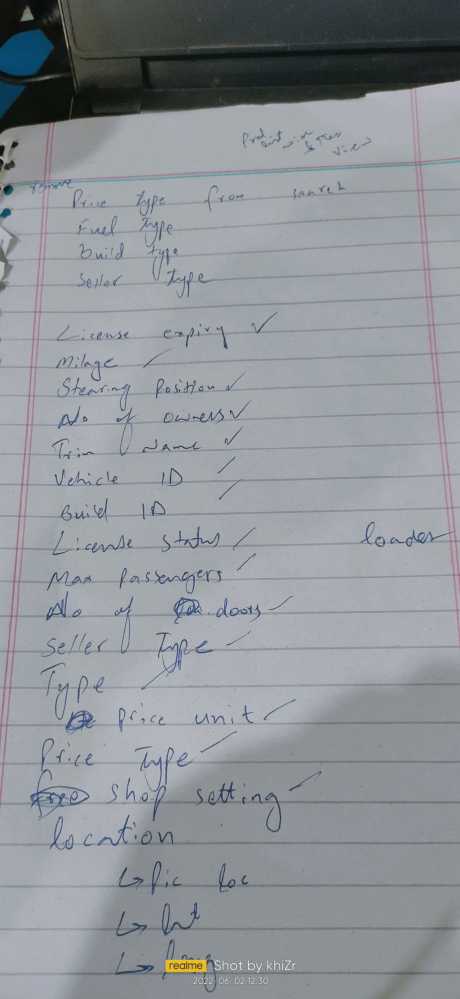 View
remove
Price type from search
Fuel type
Build type
Seller type
License expiry ✓
Milage ✓
Stearing Position ✓
No of owners ✓
Trim Name ✓
Vehicle ID ✓
Build ID ✓
License status ✓
loader
Max Passengers ✓
No of doors ✓
Seller Type ✓
Type ✓
Price unit ✓
Price Type ✓
shop setting ✓
location
↳ Pic loc
↳ lat
↳ long
realme Shot by khiZr
2022.06.02 12:30